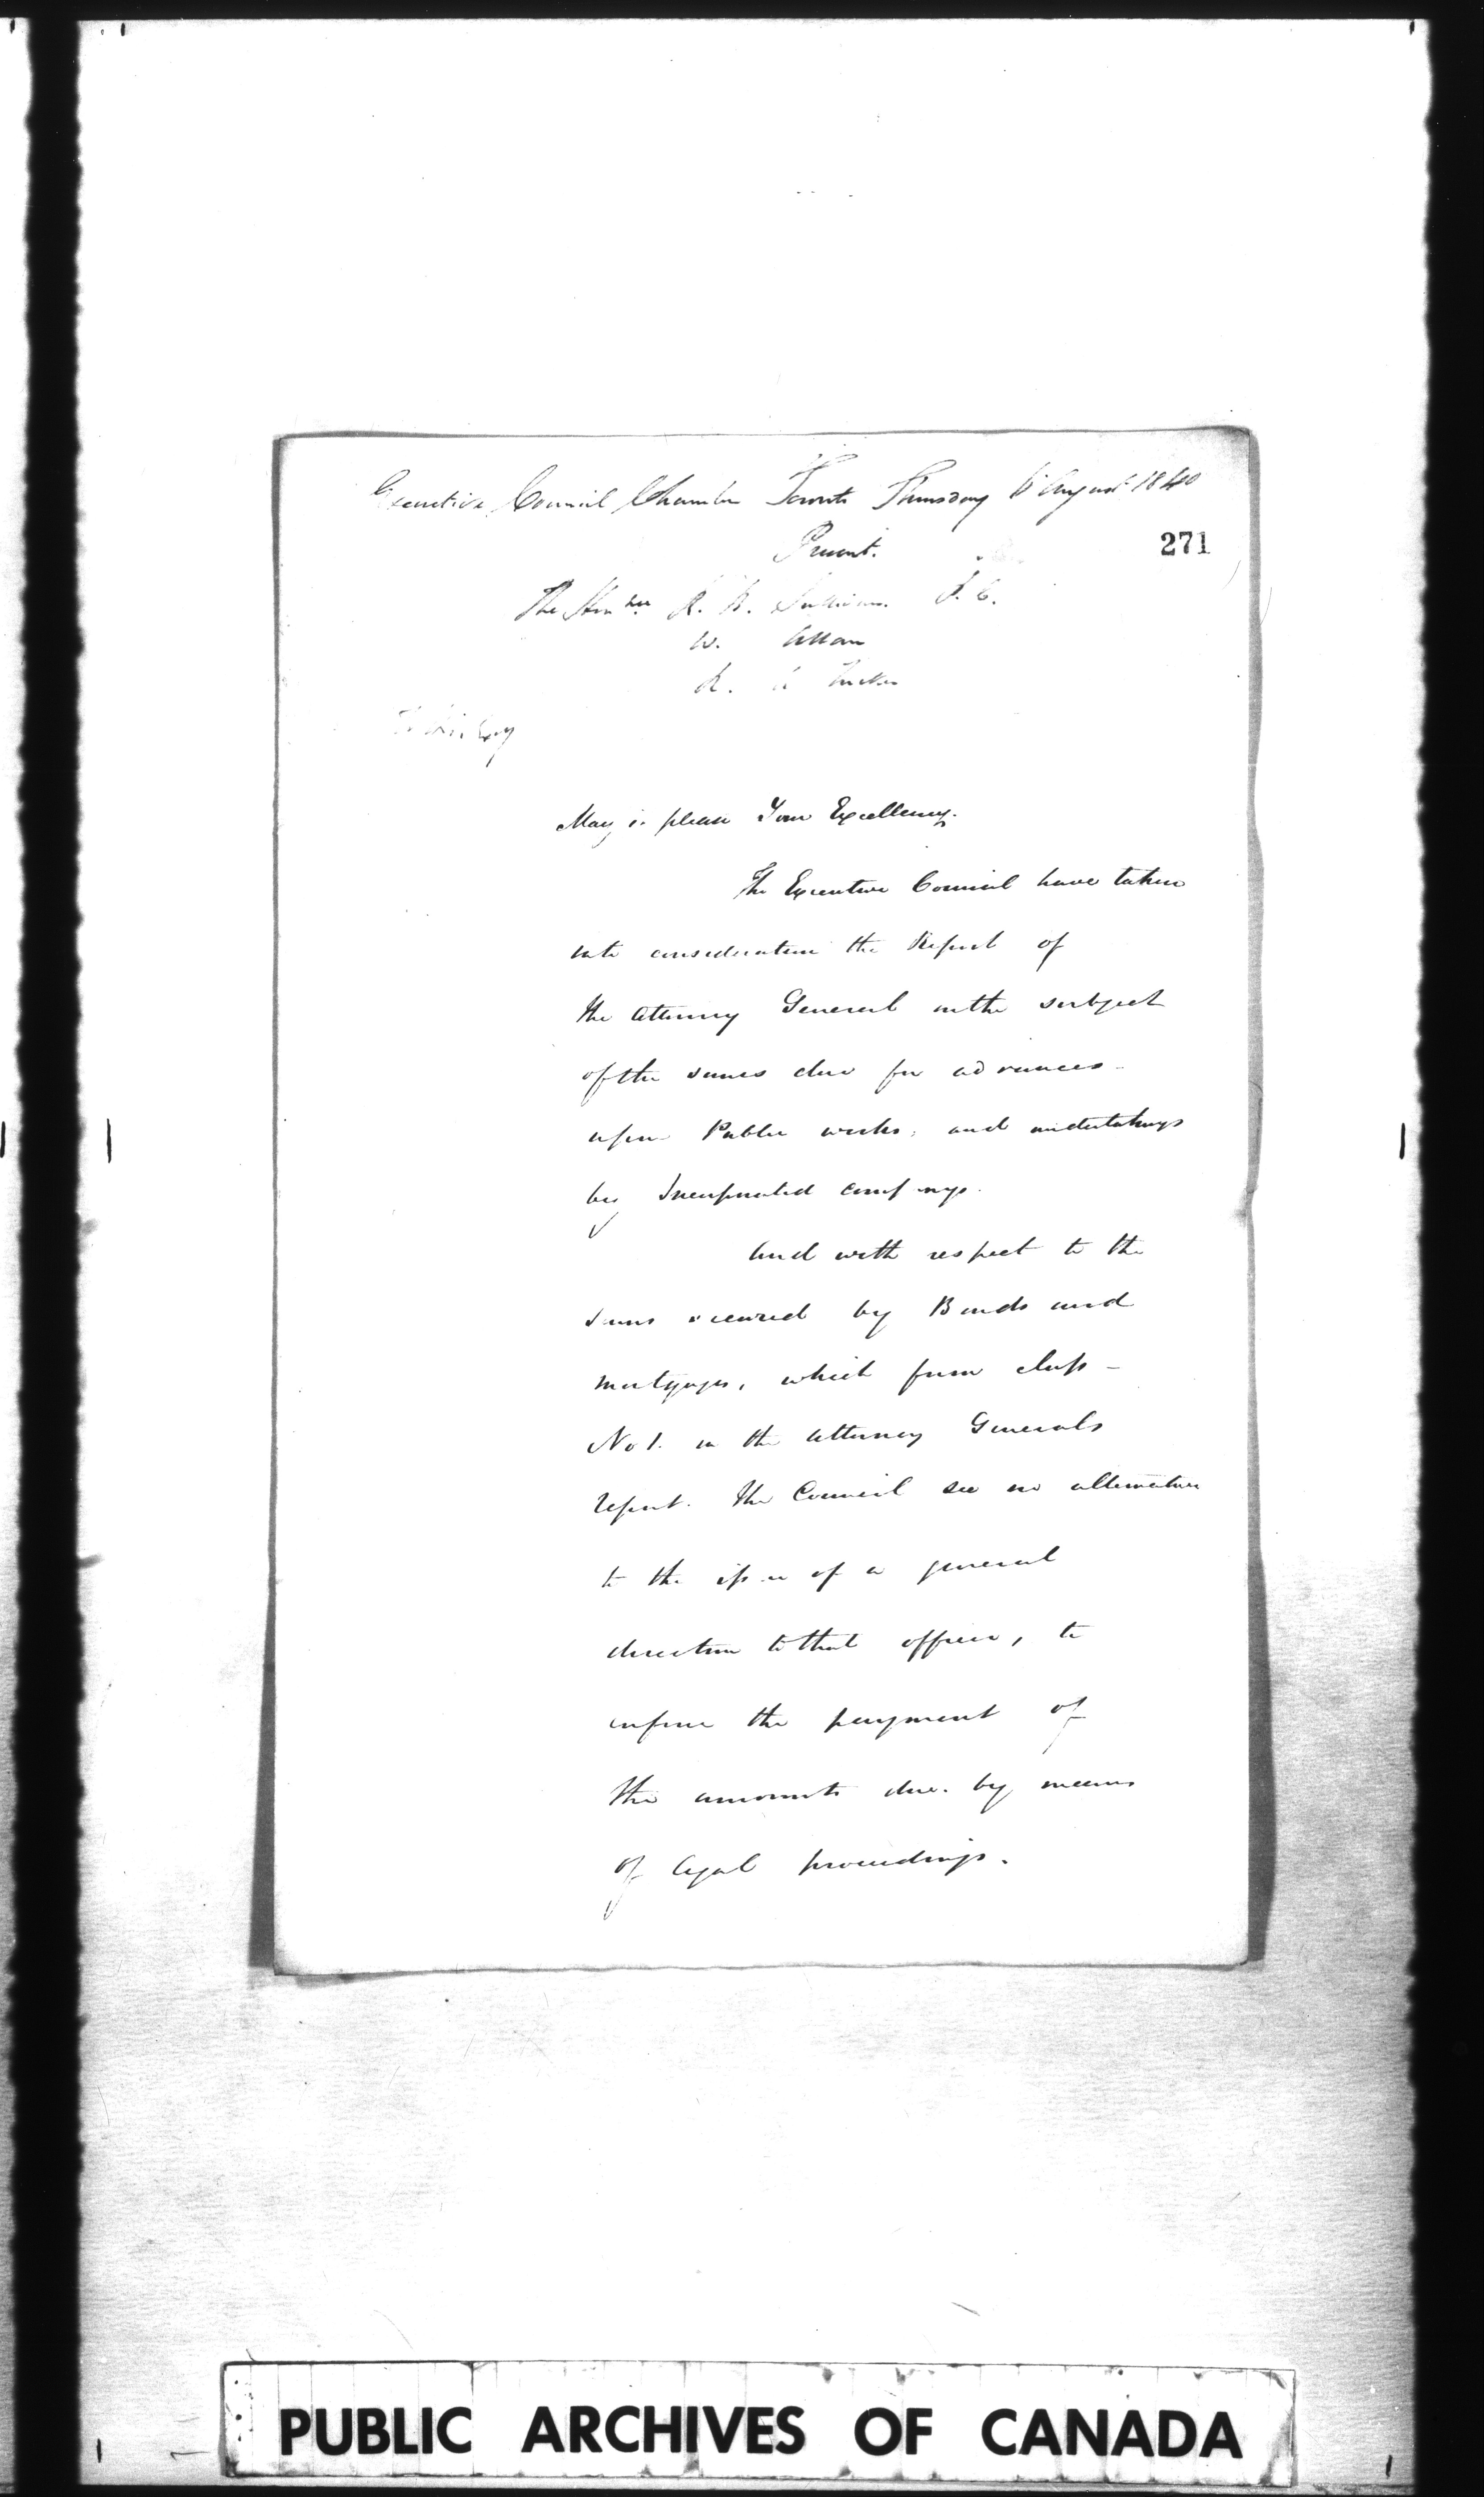 Executive Council Chamber Toronto Thursday 6 August 1840
271
Present.
The Honble R. B. Sullivan. P. C.
W. Allan
R. A Tucker
To His Excy
May it please Your Excellency.
The Executive Council have taken
into consideration the Report of
the Attorney General on the subject
of the sums due for advances
upon Public works, and undertakings
by Incorporated companys.
And with respect to the
sums secured by Bonds and
mortgages, which form class
No 1. in the Attorney Generals
report. The Council see no alternative
to the issue of a general
direction to that officer, to
enforce the payment of
the amounts due. by means
of legal proceedings.
PUBLIC ARCHIVES OF CANADA